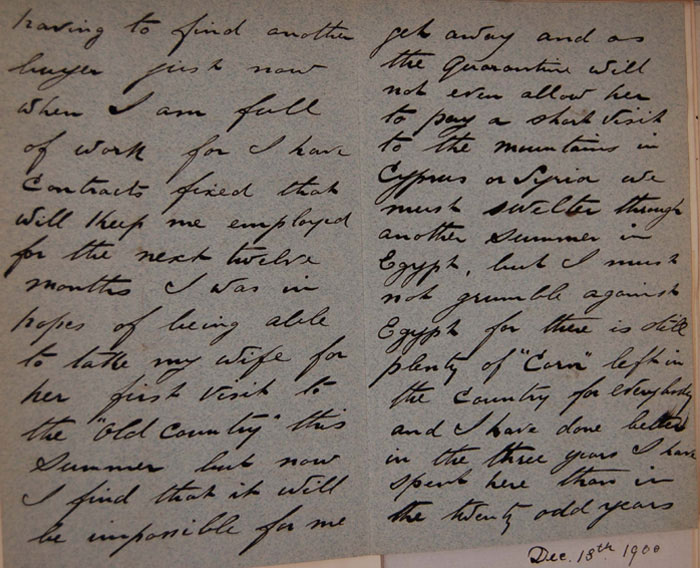 having to find another
buyer just now
when I am full
of work for I have
Contracts fixed that
will keep me employed
for the next twelve
months I was in
hopes of being able
to take my wife for
her first visit to
the "Old Country" this
Summer but now
I find that it will
be impossible for me
get away and as
the Quarantine will
not even allow her
to pay a short visit
to the mountains in
Cyprus or Syria we
must swelter through
another summer in
Egypt, but I must
not grumble against
Egypt for there is still
plenty of "Corn" left in
the Country for everybody
and I have done better
in the three years I have
spent here than in
the twenty odd years
Dec. 18th 1900